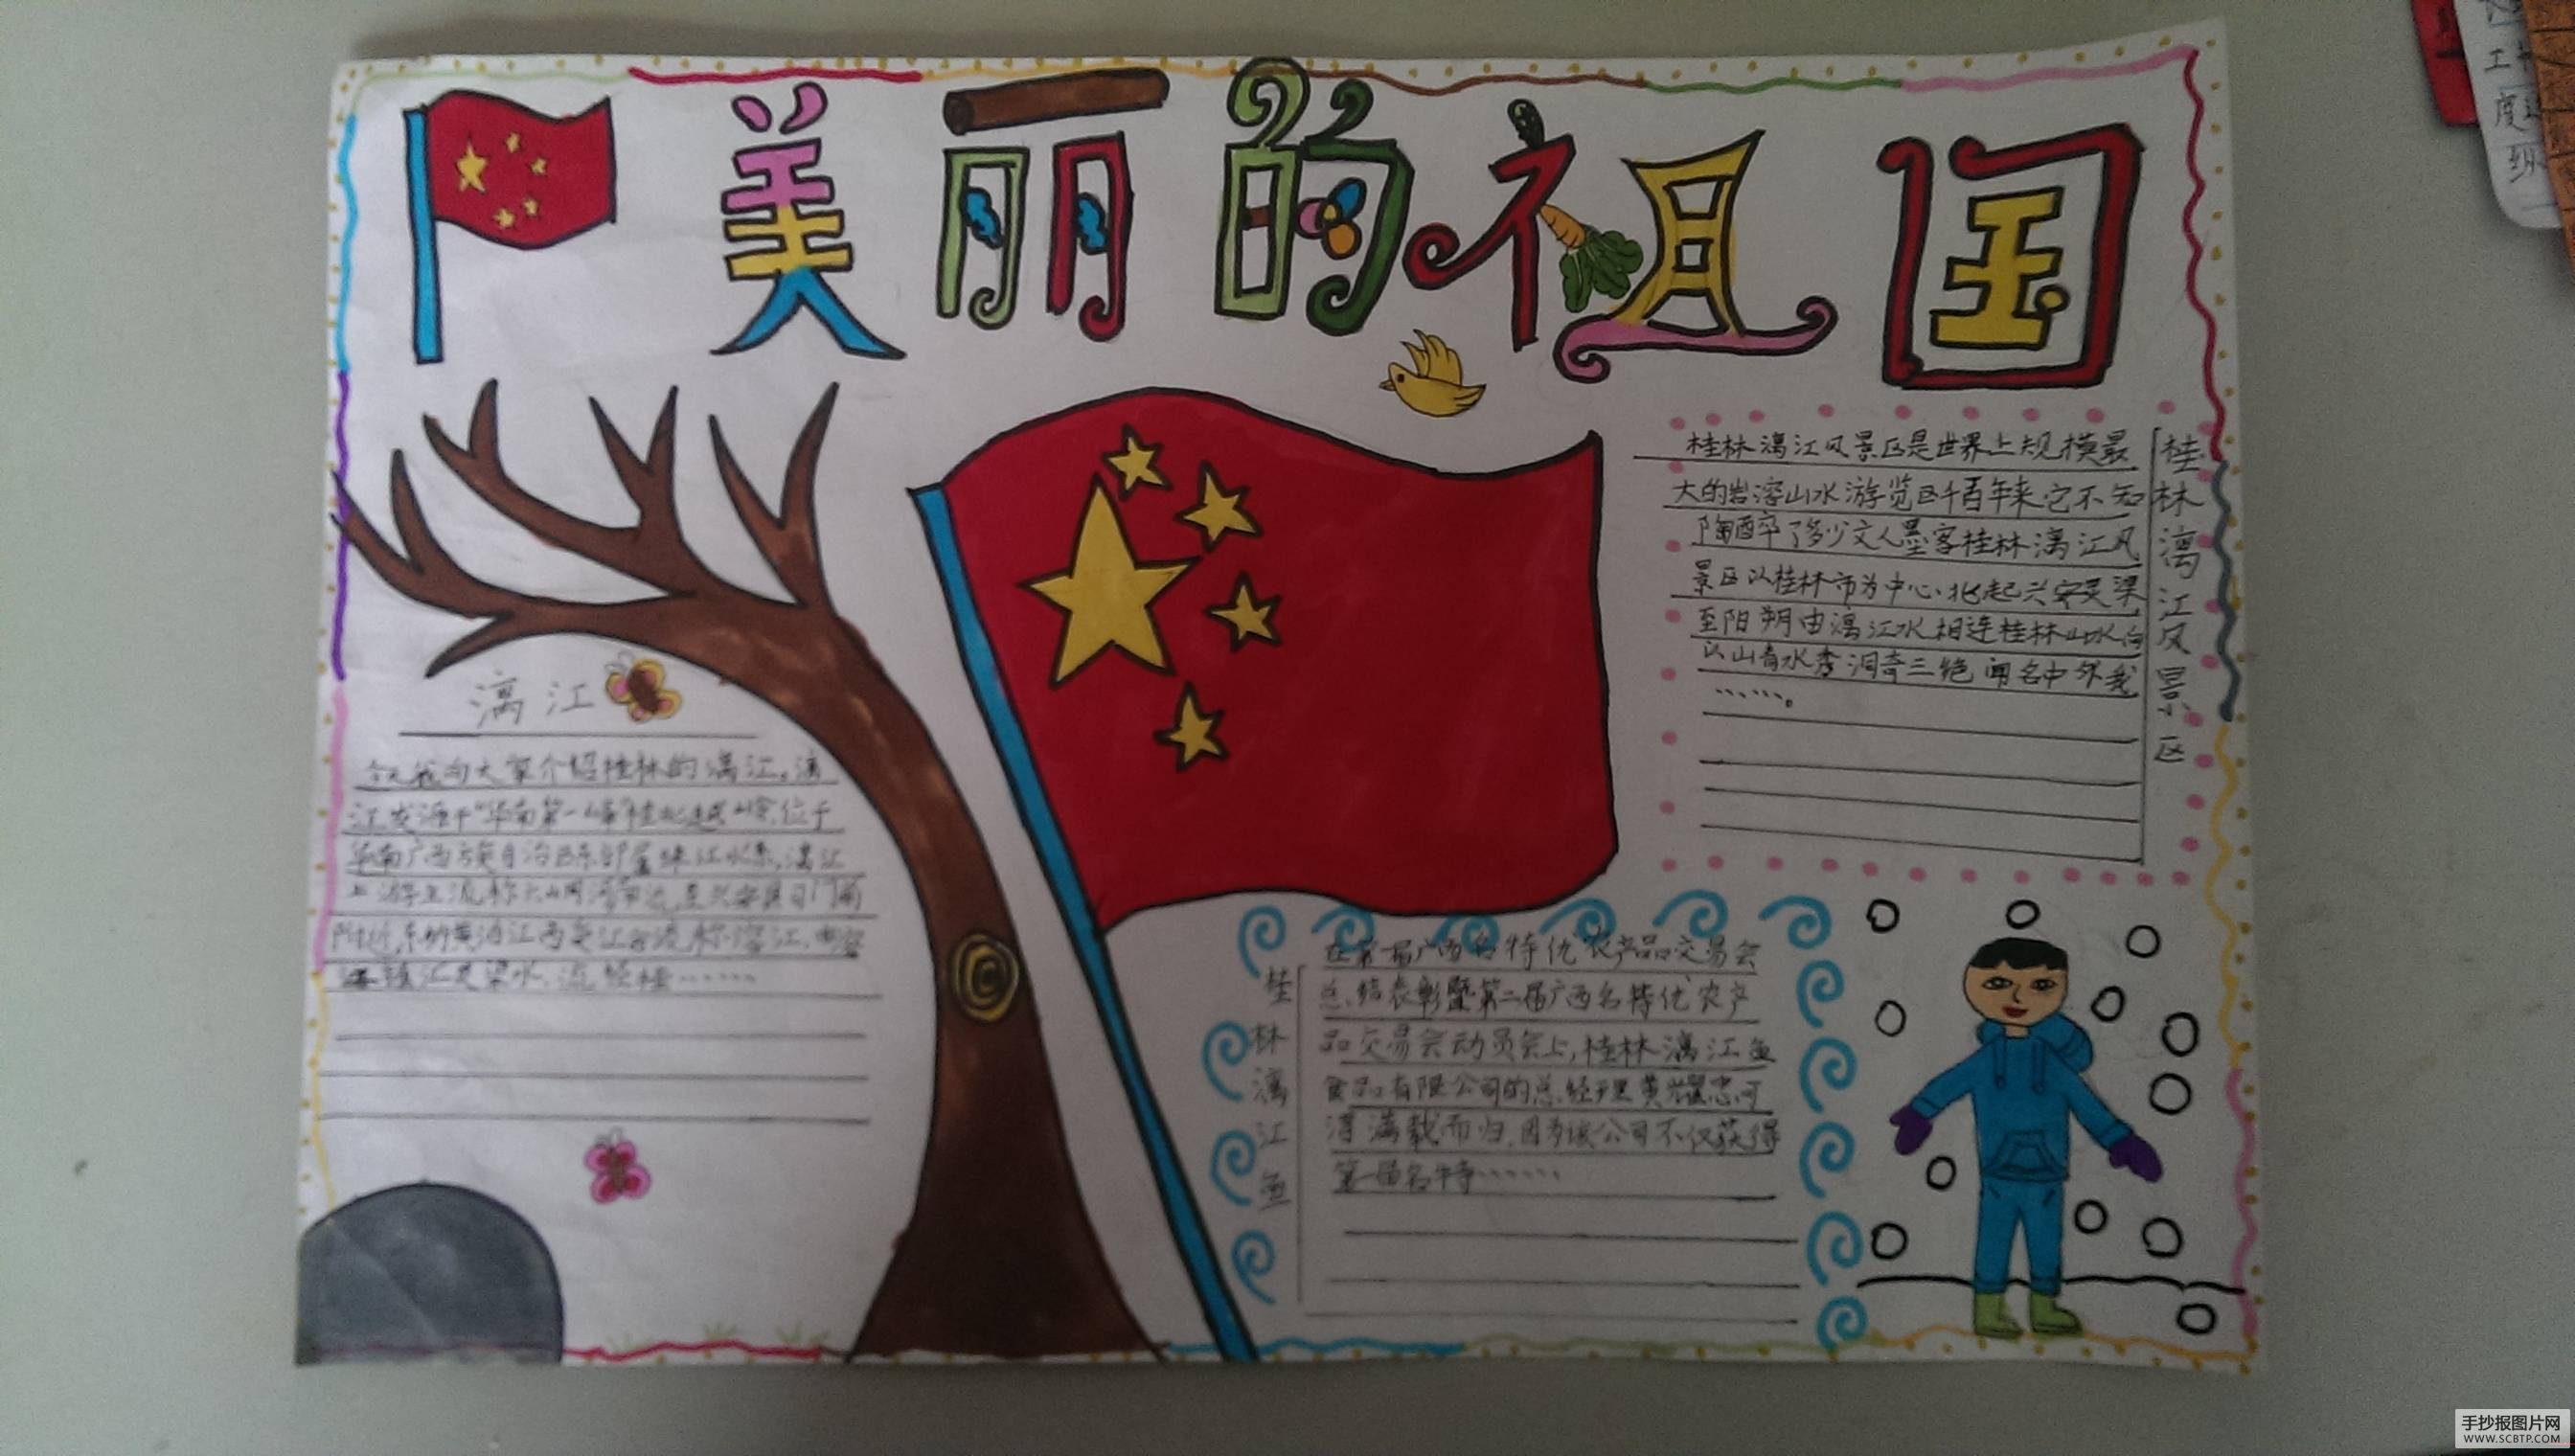 美丽的祖国
漓江
今天我向大家介绍桂林的漓江。漓
江发源于"华南第一峰"桂北越 岭,位于
华南广西 族自治区东部属珠江水系,漓江
上游主流称六 河
附近,东纳黄 江西 江 流称溶江,由
镇汇灵渠水,流经桂……
桂林漓江风景区
桂林漓江风景区是世界上规模最
大的岩溶山水游览区千百年来它不知
陶醉了多少文人墨客桂林漓江风
景区以桂林市为中心、北起兴安灵渠
至阳朔由漓江水相连桂林山水向
以山青水秀洞奇三绝闻名中外我
……。
桂林漓江鱼
在第一届广西名特优农产品交易会
总结表彰暨第二届广西名特优农产
品交易会动员会上,桂林漓江鱼
食品有限公司的总经理黄 忠可
谓满载而归,因为该公司不仅获得
第一届名特……
工
度
手抄报图片网
WWW.SCBTP.COM